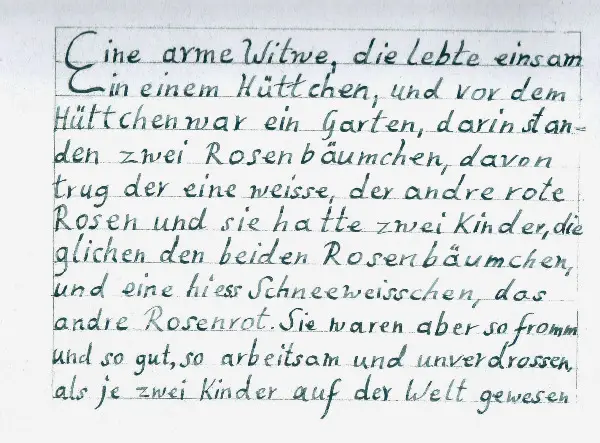 Eine arme Witwe, die lebte einsam
in einem Hüttchen, und vor dem
Hüttchen war ein Garten, darin stan-
den zwei Rosenbäumchen, davon
trug der eine weisse, der andre rote
Rosen und sie hatte zwei Kinder, die
glichen den beiden Rosenbäumchen,
und eine hiess Schneeweisschen, das
andre Rosenrot. Sie waren aber so fromm
und so gut, so arbeitsam und unverdrossen,
als je zwei Kinder auf der Welt gewesen